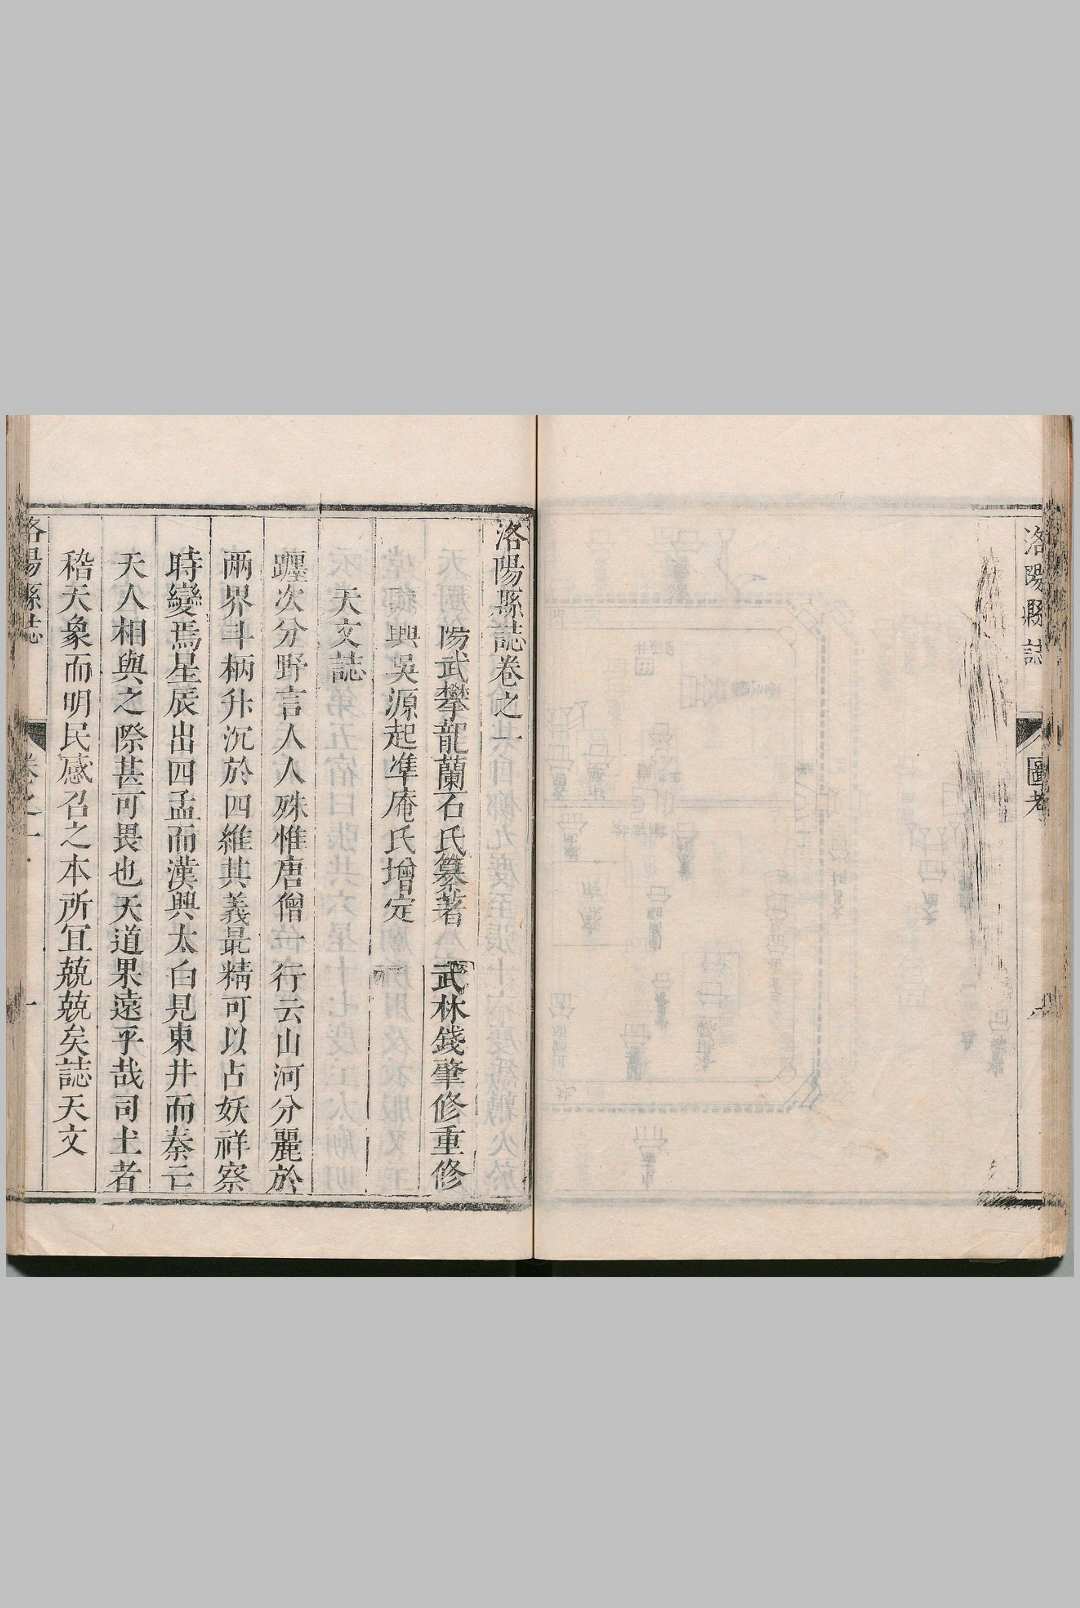 洛陽縣誌
圖考
洛陽縣誌卷之一
陽武攀龍蘭石氏纂著 武林錢肇修重修
興吳源起準庵氏增定
天文誌
躔次分野言人人殊惟唐僧一行云山河分麗於
兩界斗柄升沉於四維其義最精可以占妖祥察
時變焉星辰出四孟而漢興太白見東井而秦亡
天人相與之際甚可畏也天道果遠乎哉司土者
稽天象而明民感召之本所宜兢兢矣誌天文
洛陽縣誌
卷之一
一